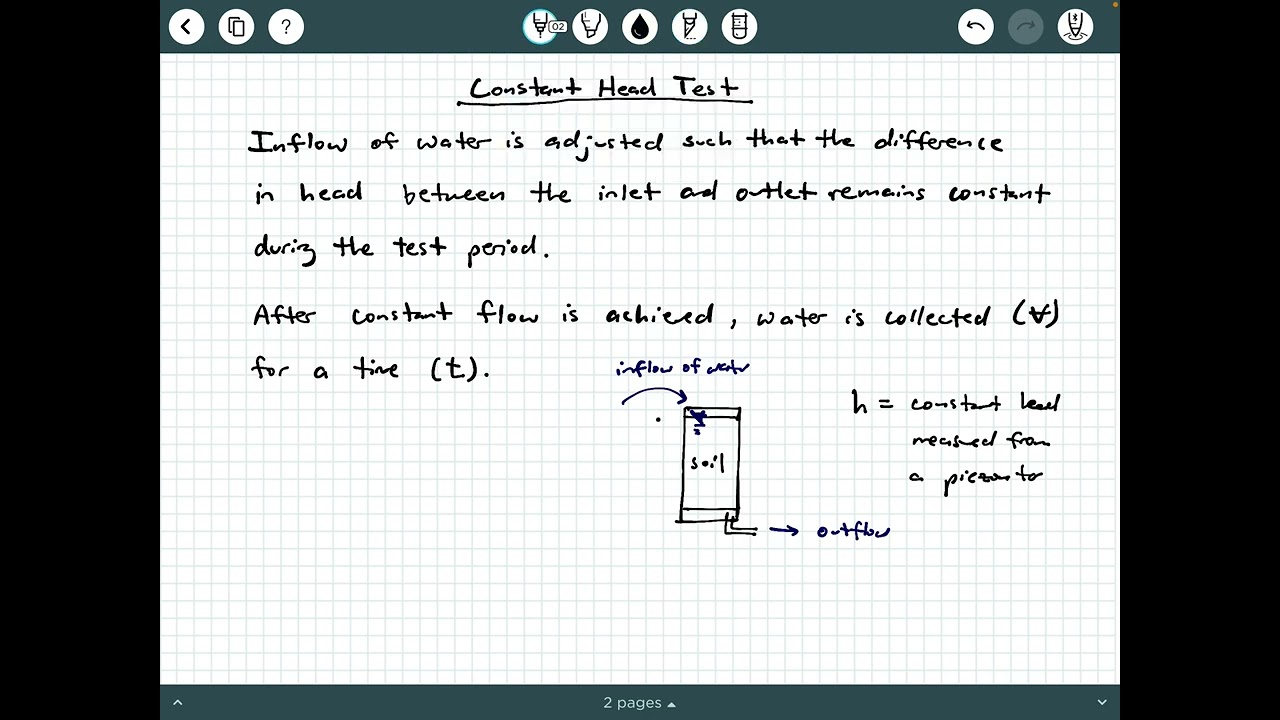 ?
02
Constant Head Test
Inflow of water is adjusted such that the difference
in head between the inlet and outlet remains constant
during the test period.
After constant flow is achieved, water is collected (V)
for a time (t).
inflow of water
h = constant head
measured from
a piezometer
soil
→ outflow
2 pages